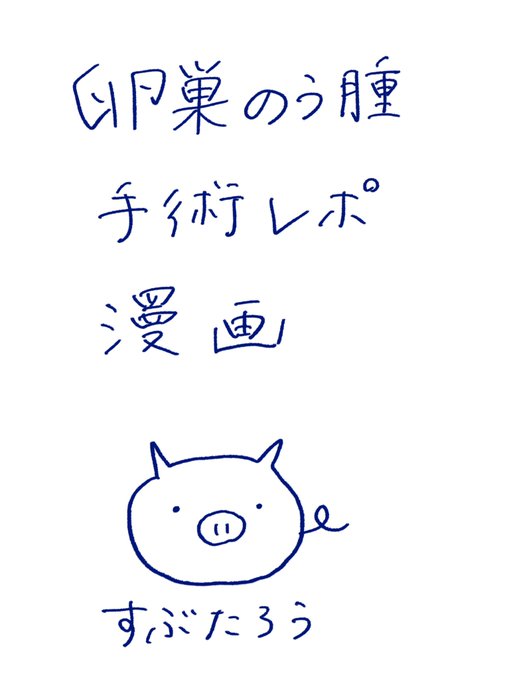 卵巣のう腫
手術レポ
漫画
すぶたろう